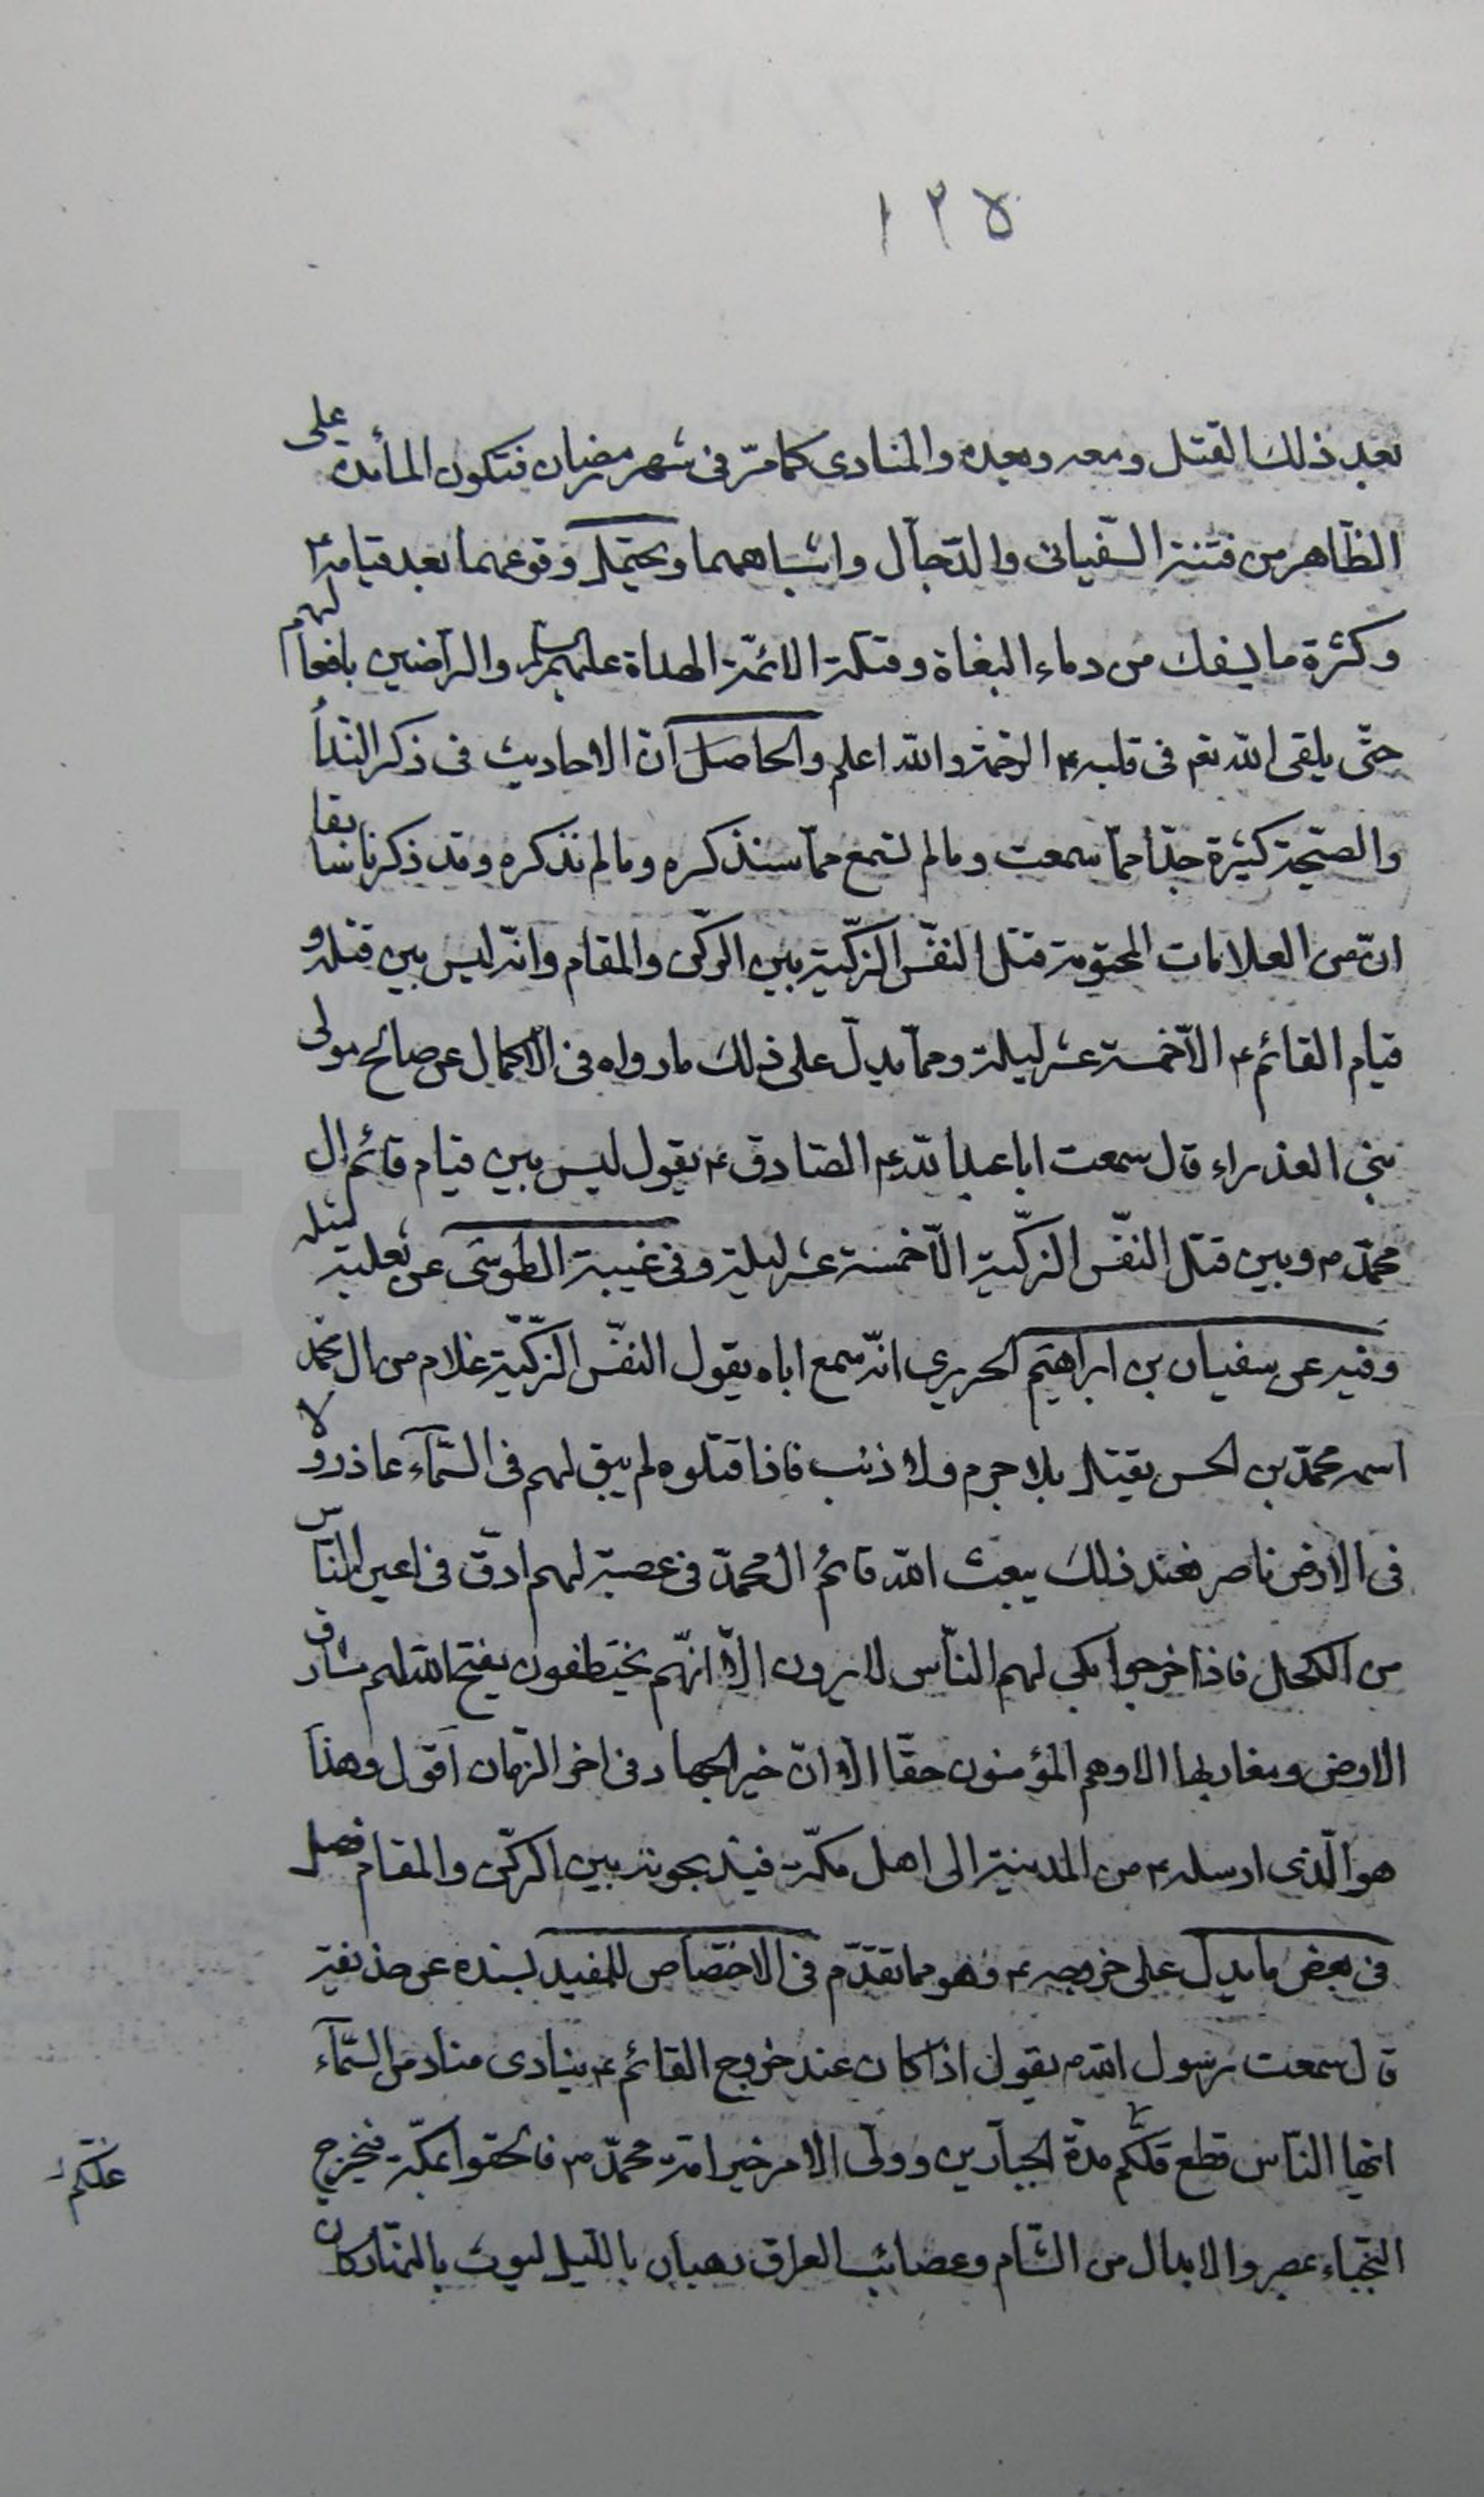 ١٢٥
بعد ذلك القتل ومعه وبعده والمنادى كما مرّ فى شهر رمضان فتكون المأىدة على
الظّاهر من فتنة السّفيانى والدّجّال واشباههما ويحتمل وقوعهما بعد قيامه ع
وكثرة ما يسفك من دماء البغاة وقتلة الائمّة الهداة عليهم السلم والراضين بافعالهم
حتّى يلقى الله تعم فى قلبه ع الرحمة والله اعلم والحاصل انّ الاحاديث فى ذكر النّدأ
والصّيحة كثيرة جدّا ممّا سمعت وما لم تسمع ممّا سنذكره وما لم نذكره وقد ذكرنا سابقا
انّ من العلامات المحتومة قتل النفّس الزكّية بين الركّن والمقام وانّه ليس بين قتله و
قيام القائم ع الاّ خمسة عشر ليلة وممّا يدلّ على ذلك ما رواه فى الاكمال عن صالح مولى
بنى العذراء قال سمعت ابا عبد الله ع الصّادق ع يقول ليس بين قيام قائم ال
محمّد ص وبين قتل النفّس الزكّية الاّ خمسة عشر ليلة وفى غيبة الطوسى عن ثعلبة مثله
وفيه عن سفيان بن ابراهيم الحريرى انّه سمع اباه يقول النفّس الزكّية غلام من ال محمّد
اسمه محمّد بن الحسن يقتل بلا جرم ولا ذنب فاذا قتلوه لم يبق لهم فى السّمآء عاذر ولا
فى الارض ناصر فعند ذلك يبعث الله قائم ال محمّد فى عصبة لهم ادقّ فى اعين النّاس
من الكحل فاذا خرجوا بكى لهم النّاس لا يرون الاّ انّهم يختطفون يفتح الله لهم مشارق
الارض ومغاربها الا وهم المؤمنون حقّا الا انّ خير الجهاد فى اخر الزّمان اقول وهذا
هو الّذى ارسله ع من المدينة الى اهل مكّة فيذبحونه بين الركّن والمقام فصل
فى بعض ما يدلّ على خروجه ع وهو مما تقدّم فى الاختصاص للمفيد بسنده عن حذيفة
قال سمعت رسول الله ص يقول اذا كان عند خروج القائم ع ينادى مناد من السّمآء
ايّها النّاس قطع قلّكم مدّة الجبّارين وولّى الامر خير امّة محمّد ص فالحقوا بمكّة فيخرج
عنكم
النجّباء بمصر والابدال من الشّام وعصائب العراق رهبان بالليل ليوث بالنّهار كان